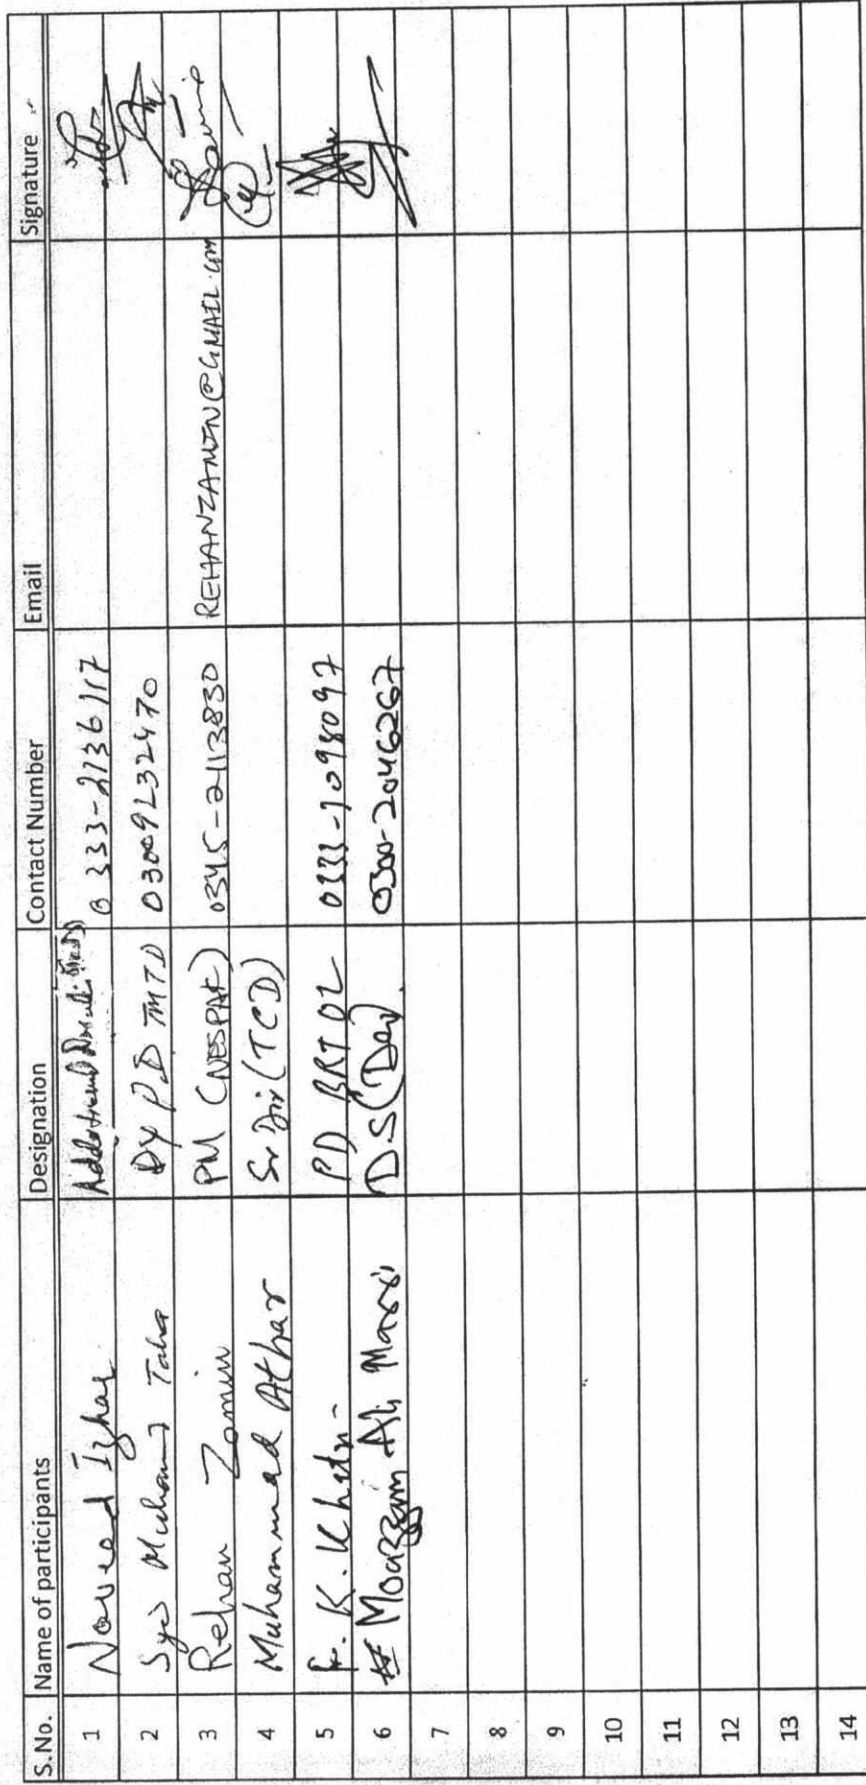 S. No. Name of participants Designation Contact Number Email Signature
1 Naveed Izhar 0333-2136117
2 Syed Muhammad Taha Dy P.D TMTD 03009232470
3 Rehan Zamin PM (NESPAK) 0345-2113830 REHANZAMIN@GMAIL.COM
4 Muhammad Athar Sr Dir (TCD)
5 F. K. PD BRT
6 Moazzim Ali D.S (Dev) 0300-2046267
7
8
9
10
11
12
13
14